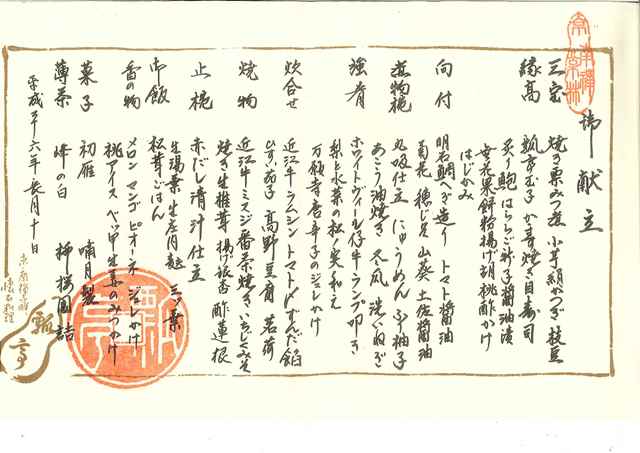 御献立
三宝
縁高
焼き栗みつ煮 小芋絹かつぎ 枝豆
瓢亭玉子 かます焼き目寿司
炙り鮑 はららご 新子醤油漬
無花果餅粉揚げ胡桃酢かけ
はじかみ
向付
明石鯛へぎ造り トマト醤油
菊花 穂じそ 山葵 土佐醤油
煮物椀
丸吸仕立 にゅうめん ふり柚子
あこう油焼き 冬瓜 洗いねぎ
強肴
ホワイトヴィール仔牛ランプ叩き
梨と水菜の松ノ実和え
万願寺唐辛子のジュレかけ
炊合せ
近江牛ラムシン トマト ずんだ餡
ひすい茄子 高野豆腐 茗荷
焼物
近江牛ミスジ番茶焼き いちじくみそ
焼き生椎茸 揚げ銀杏 酢蓮根
止椀
赤だし清汁仕立
生湯葉 生庄内麩 三ツ葉
御飯
松茸ごはん
香の物
メロン マンゴ ピオーネ ジュレかけ
桃アイス べっ甲生姜のみつかけ
菓子 初雁 嘯月製
薄茶 峰の白 柳桜園詰
平成二十六年長月十日
京都 南禅寺畔
瓢亭